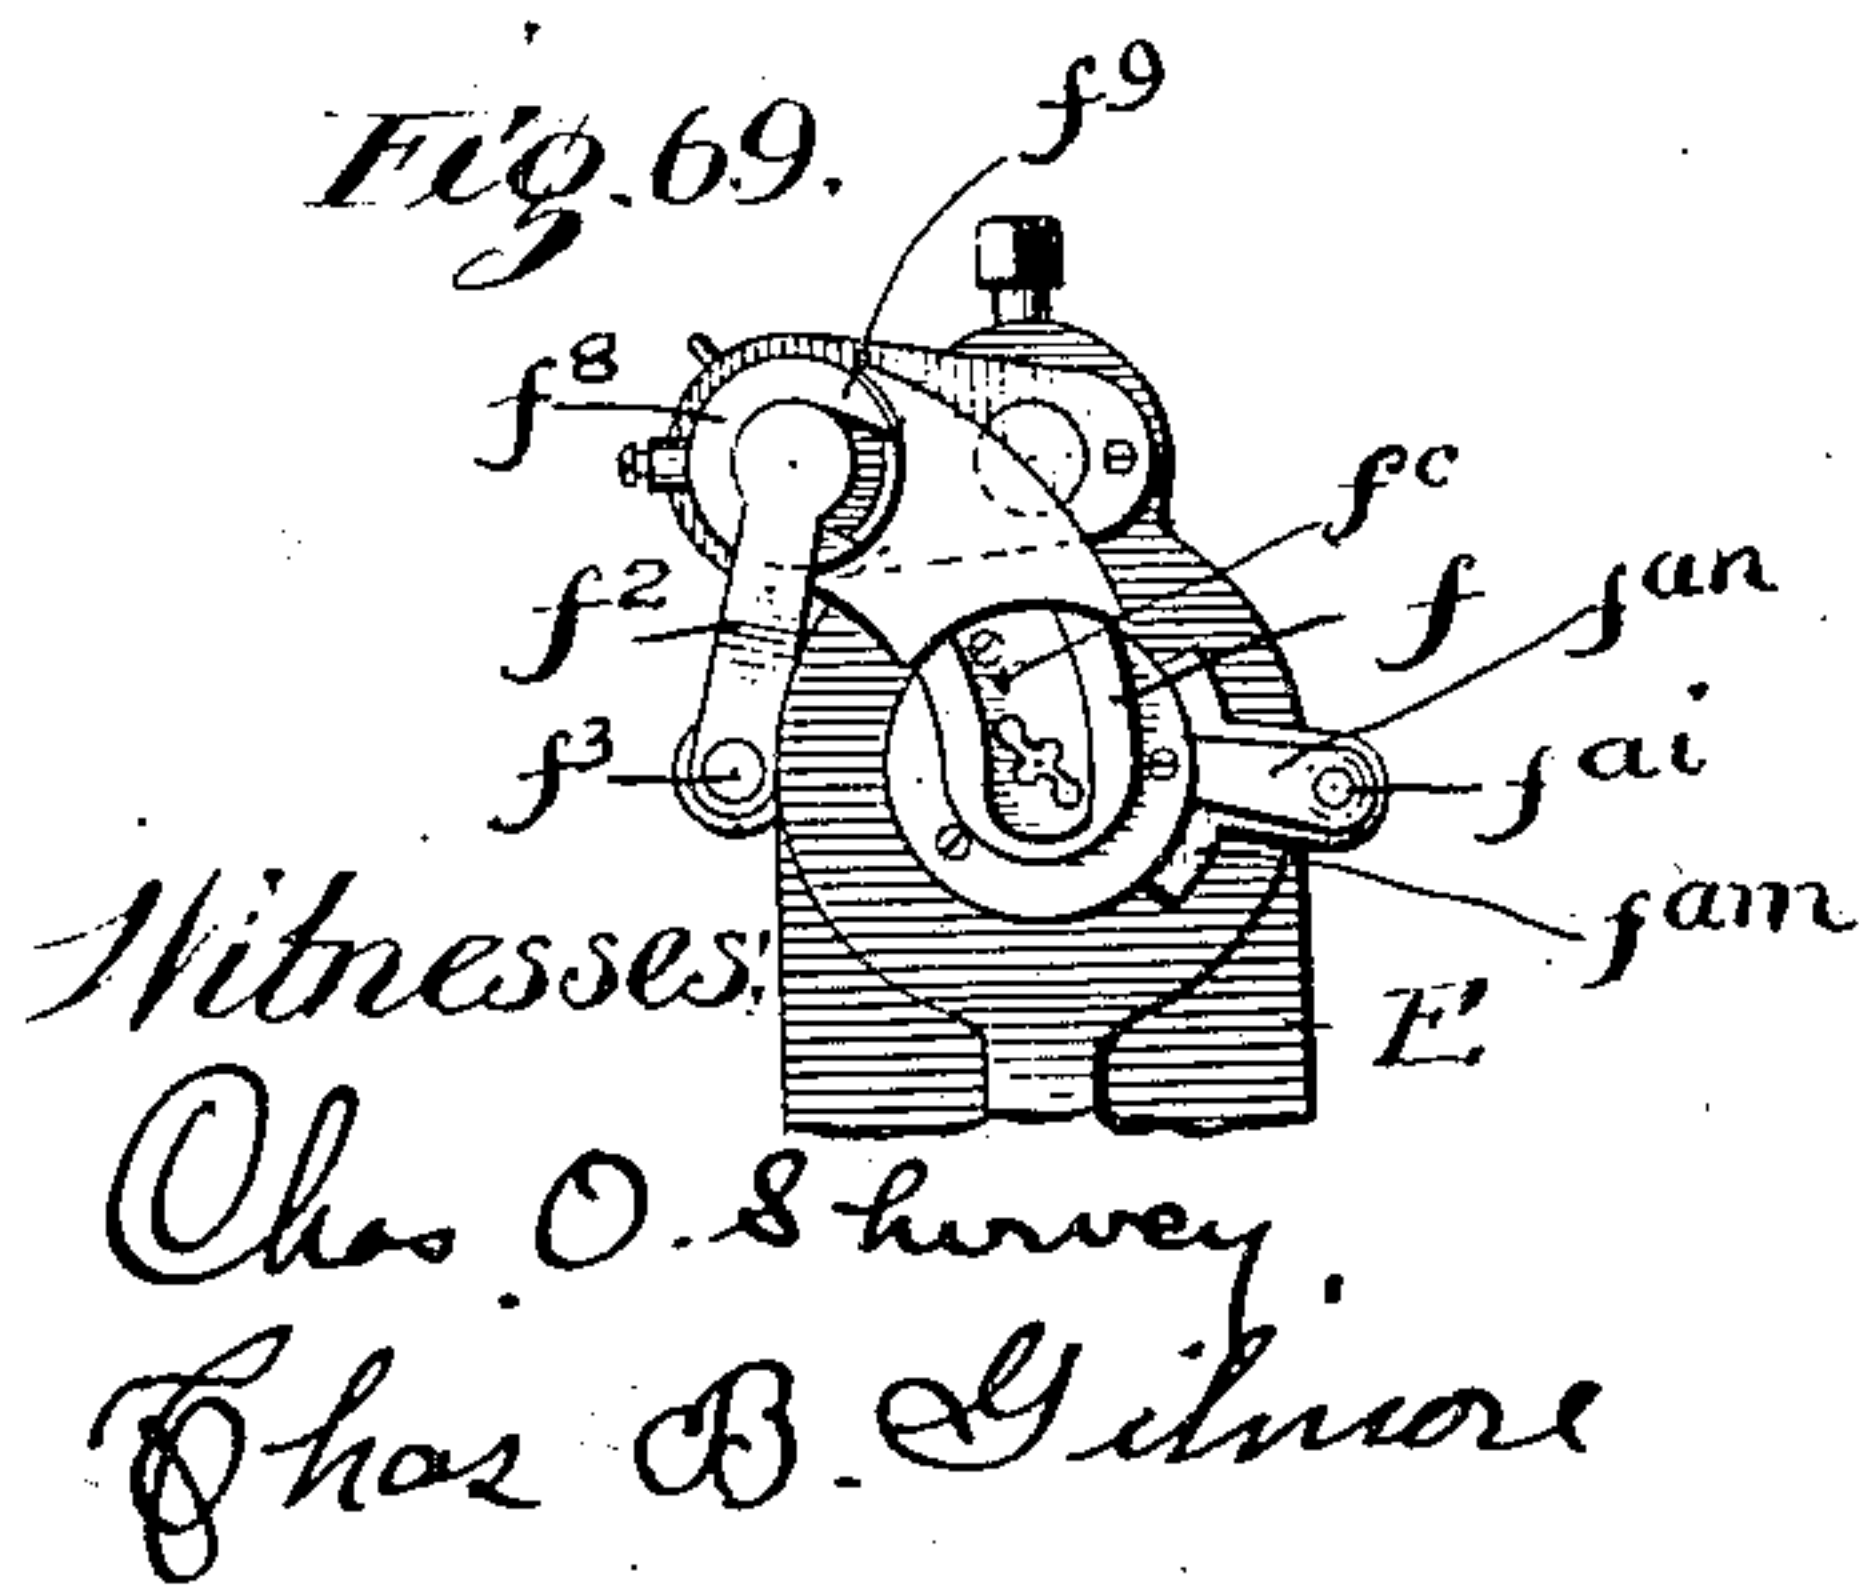 Fig. 69.
f9
f8
fc
fan
f
f2
f3
fai
fam
E
Witnesses:
Chas. O. Shurvey.
Thos. B. Gilmore